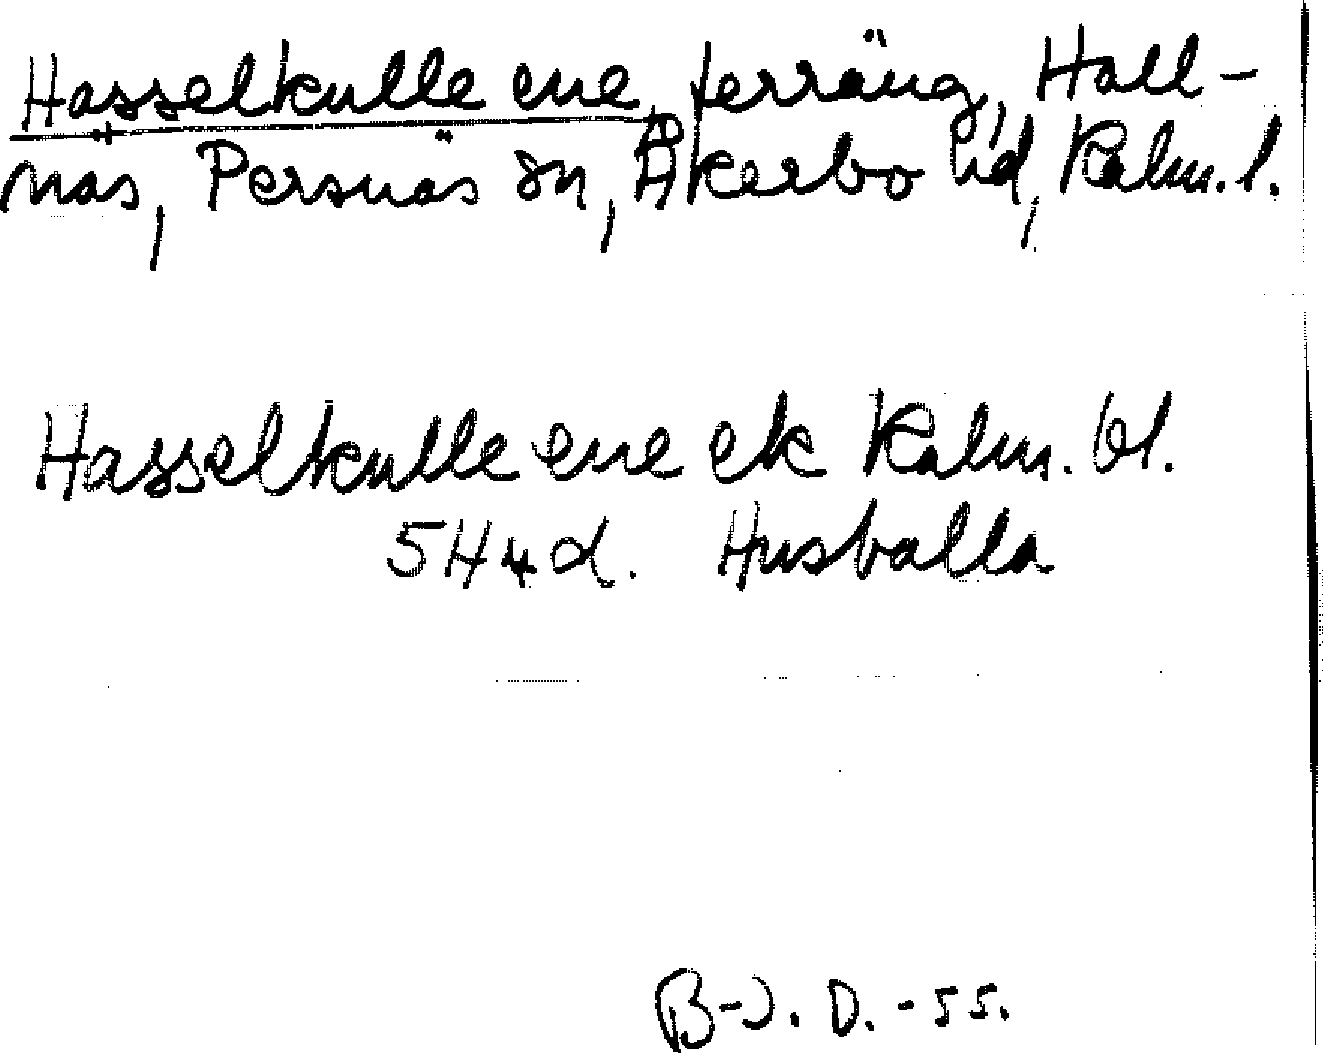 Hasselkulle ene, terräng, Hall-
näs, Persnäs sn, Åkerbo hd, Kalm. l.
Hasselkulle ene ek Kalm. bl.
5H4d. Husvalla
B-J. D. -55.